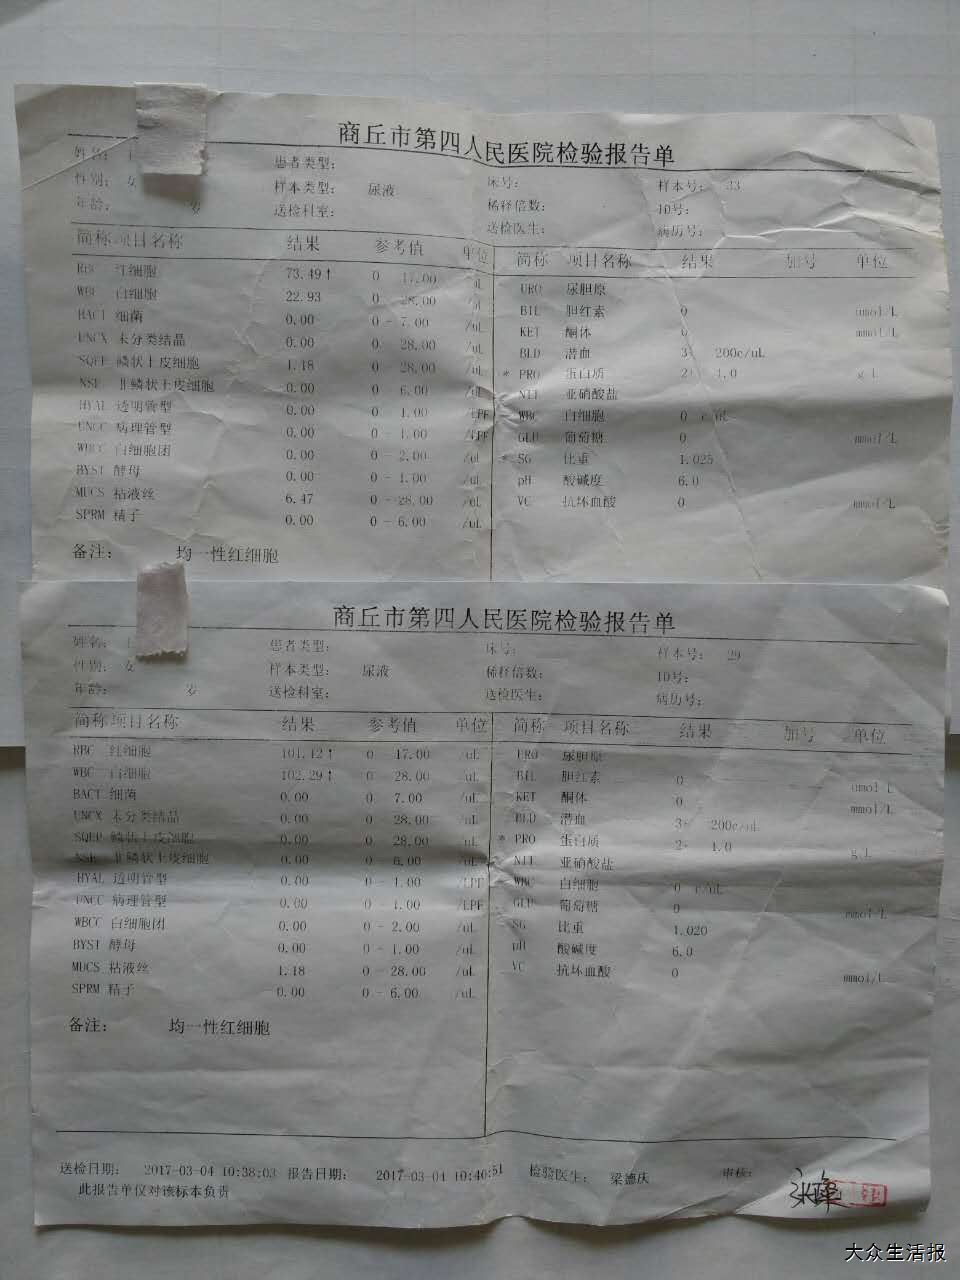 商丘市第四人民医院检验报告单
姓名: 患者类型: 床号: 样本号: 33
性别: 女 样本类型: 尿液 稀释倍数: ID号:
年龄: 岁 送检科室: 送检医生: 病历号:
简称 项目名称 结果 参考值 单位 简称 项目名称 结果 加号 单位
RBC 红细胞 73.49↑ 0 17.00 /uL URO 尿胆原
WBC 白细胞 22.93 0 28.00 /uL BIL 胆红素 0 umol/L
BACT 细菌 0.00 0-7.00 /uL KET 酮体 0 mmol/L
UNCX 未分类结晶 0.00 0-28.00 /uL BLD 潜血 3+ 200c/uL
SQEP 鳞状上皮细胞 1.18 0-28.00 /uL * PRO 蛋白质 2+ 1.0 g/L
NSE 非鳞状上皮细胞 0.00 0 6.00 /uL NIT 亚硝酸盐
HYAL 透明管型 0.00 0 1.00 /LPF WBC 白细胞 0 c/uL
UNCC 病理管型 0.00 0-1.00 /LPF GLU 葡萄糖 0 mmol/L
WBCC 白细胞团 0.00 0-2.00 /uL * SG 比重 1.025
BYST 酵母 0.00 0-1.00 /uL pH 酸碱度 6.0
MUCS 粘液丝 6.47 0-28.00 /uL VC 抗坏血酸 0 mmol/L
SPRM 精子 0.00 0-6.00 /uL
备注: 均一性红细胞
商丘市第四人民医院检验报告单
姓名: 患者类型: 床号: 样本号: 29
性别: 女 样本类型: 尿液 稀释倍数: ID号:
年龄: 岁 送检科室: 送检医生: 病历号:
简称 项目名称 结果 参考值 单位 简称 项目名称 结果 加号 单位
RBC 红细胞 101.12↑ 0 17.00 /uL URO 尿胆原
WBC 白细胞 102.29↑ 0 28.00 /uL BIL 胆红素 0 umol/L
BACT 细菌 0.00 0 7.00 /uL KET 酮体 0 mmol/L
UNCX 未分类结晶 0.00 0 28.00 /uL BLD 潜血 3+ 200c/uL
SQEP 鳞状上皮细胞 0.00 0 28.00 /uL * PRO 蛋白质 2+ 1.0 g/L
NSE 非鳞状上皮细胞 0.00 0-6.00 /uL NIT 亚硝酸盐
HYAL 透明管型 0.00 0-1.00 /LPF WBC 白细胞 0 c/uL
UNCC 病理管型 0.00 0 1.00 /LPF GLU 葡萄糖 0 mmol/L
WBCC 白细胞团 0.00 0-2.00 /uL SG 比重 1.020
BYST 酵母 0.00 0-1.00 /uL pH 酸碱度 6.0
MUCS 粘液丝 1.18 0-28.00 /uL VC 抗坏血酸 0 mmol/L
SPRM 精子 0.00 0-6.00 /uL
备注: 均一性红细胞
送检日期: 2017-03-04 10:38:03 报告日期: 2017-03-04 10:40:51 检验医生: 梁德庆 审核:
此报告单仅对该标本负责
大众生活报